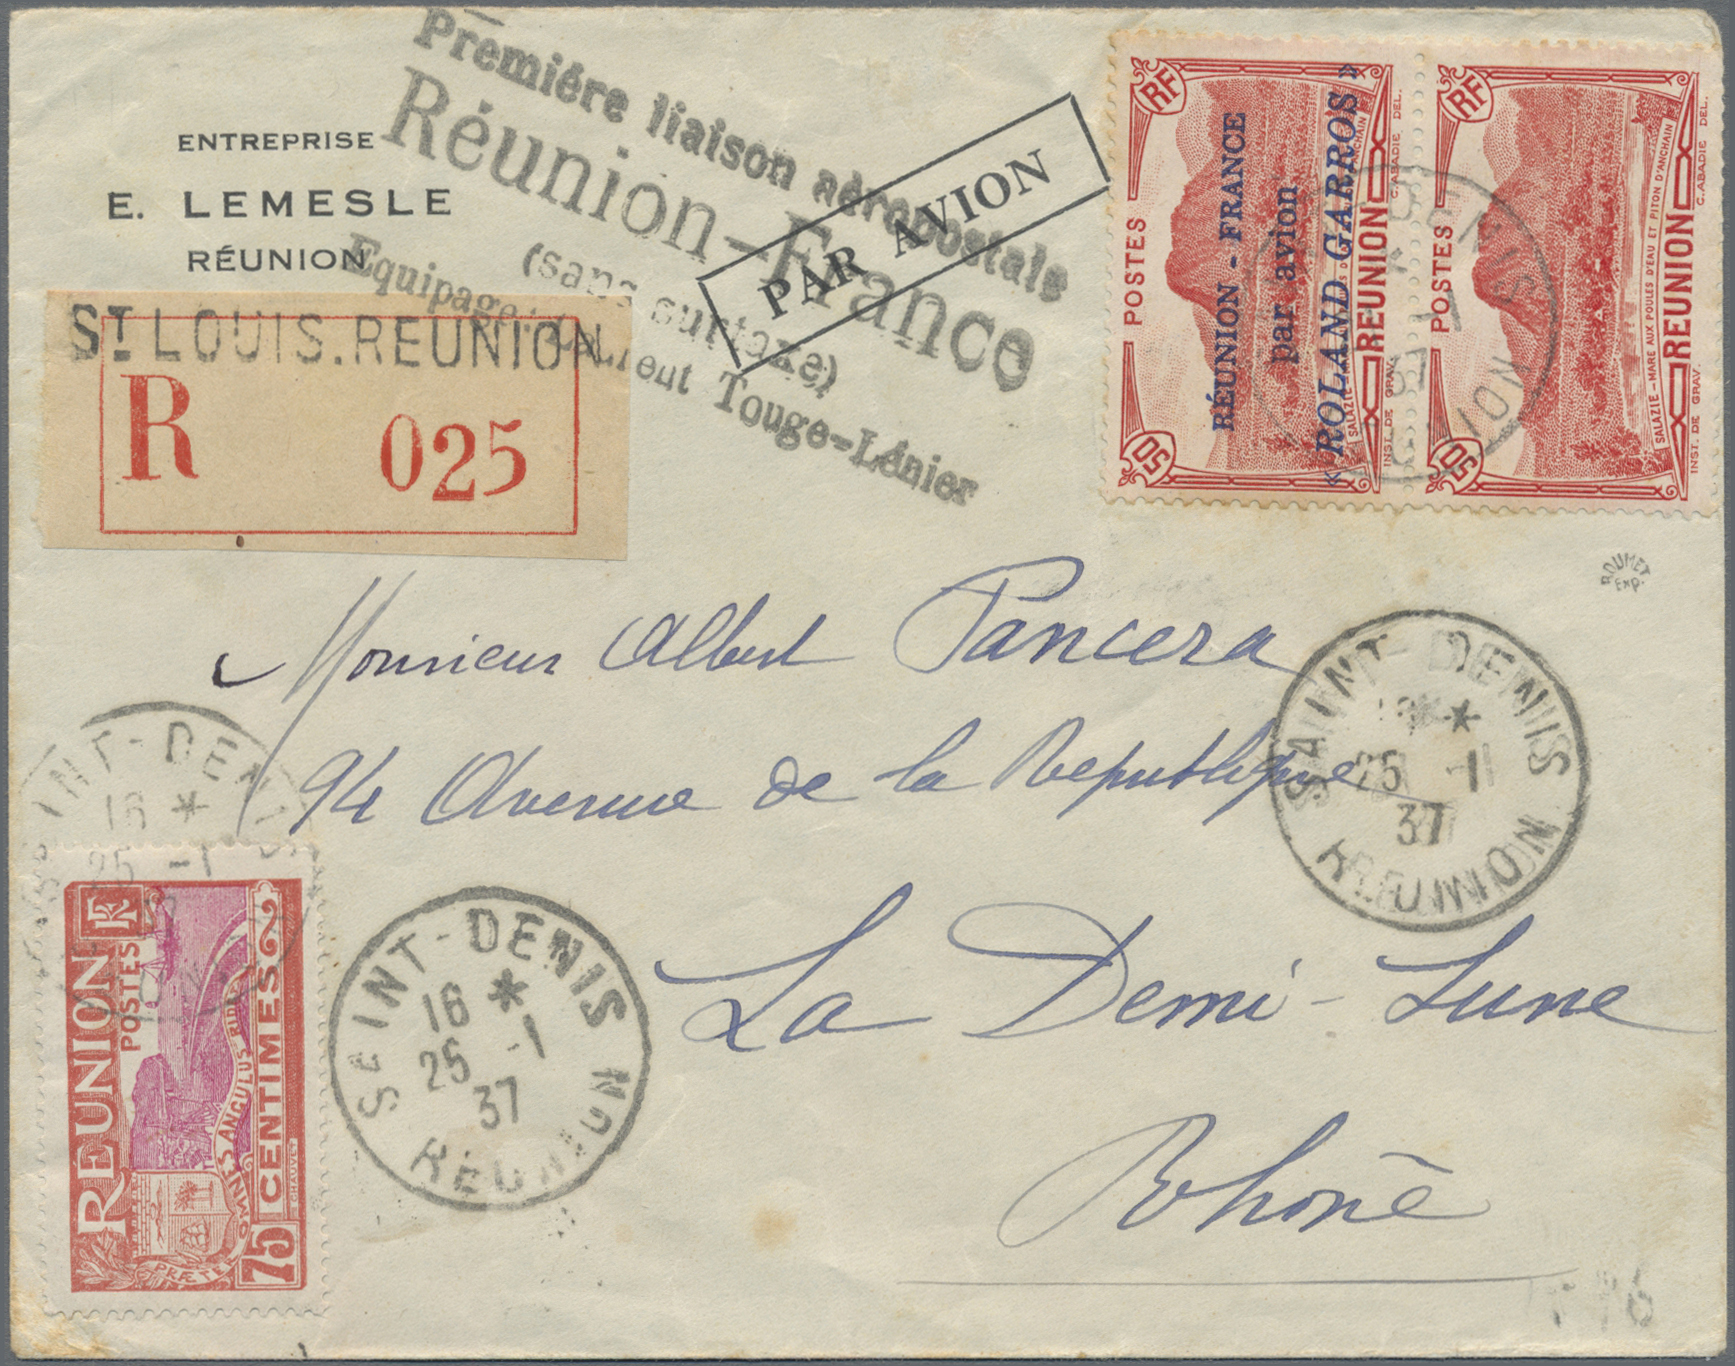 ENTREPRISE
E. LEMESLE
RÉUNION
Premiére liaison aéropostale
Réunion-France
(sans surtaxe)
Equipage: Laurent Touge-Lénier
PAR AVION
ST LOUIS.REUNION
R 025
RF
POSTES
50
RÉUNION - FRANCE
par avion
« ROLAND GARROS »
REUNION
INST. DE GRAV.
C. ABADIE DEL.
RF
POSTES
50
SALAZIE-MARE AUX POULES D'EAU ET PITON D'ANCHAIN
REUNION
INST. DE GRAV.
C. ABADIE DEL.
DENIS
ROUMET
Exp.
Monsieur Albert Pancera
94 Avenue de la Republique
La Demi-Lune
Rhône
SAINT-DENIS
25 -1
37
REUNION
SAINT-DENIS
16 *
25 -1
SAINT-DENIS
16 *
25 -1
37
REUNION
RF
REUNION
POSTES
75 CENTIMES
CHAUVET